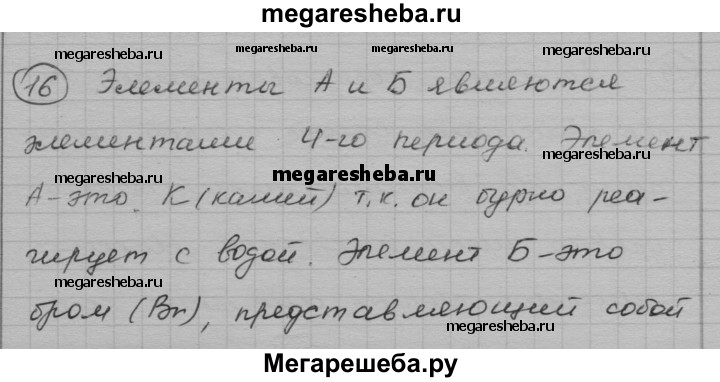 megaresheba.ru
megaresheba.ru megaresheba.ru megaresheba.ru megaresheba.ru
16 Элементы А и Б являются
элементами 4-го периода. Элемент
megaresheba.ru
megaresheba.ru
А-это K (калий) т.к. он бурно реа-
гирует с водой. Элемент Б-это
бром (Br), представляющий собой
megaresheba.ru
megaresheba.ru
Мегарешеба.ру